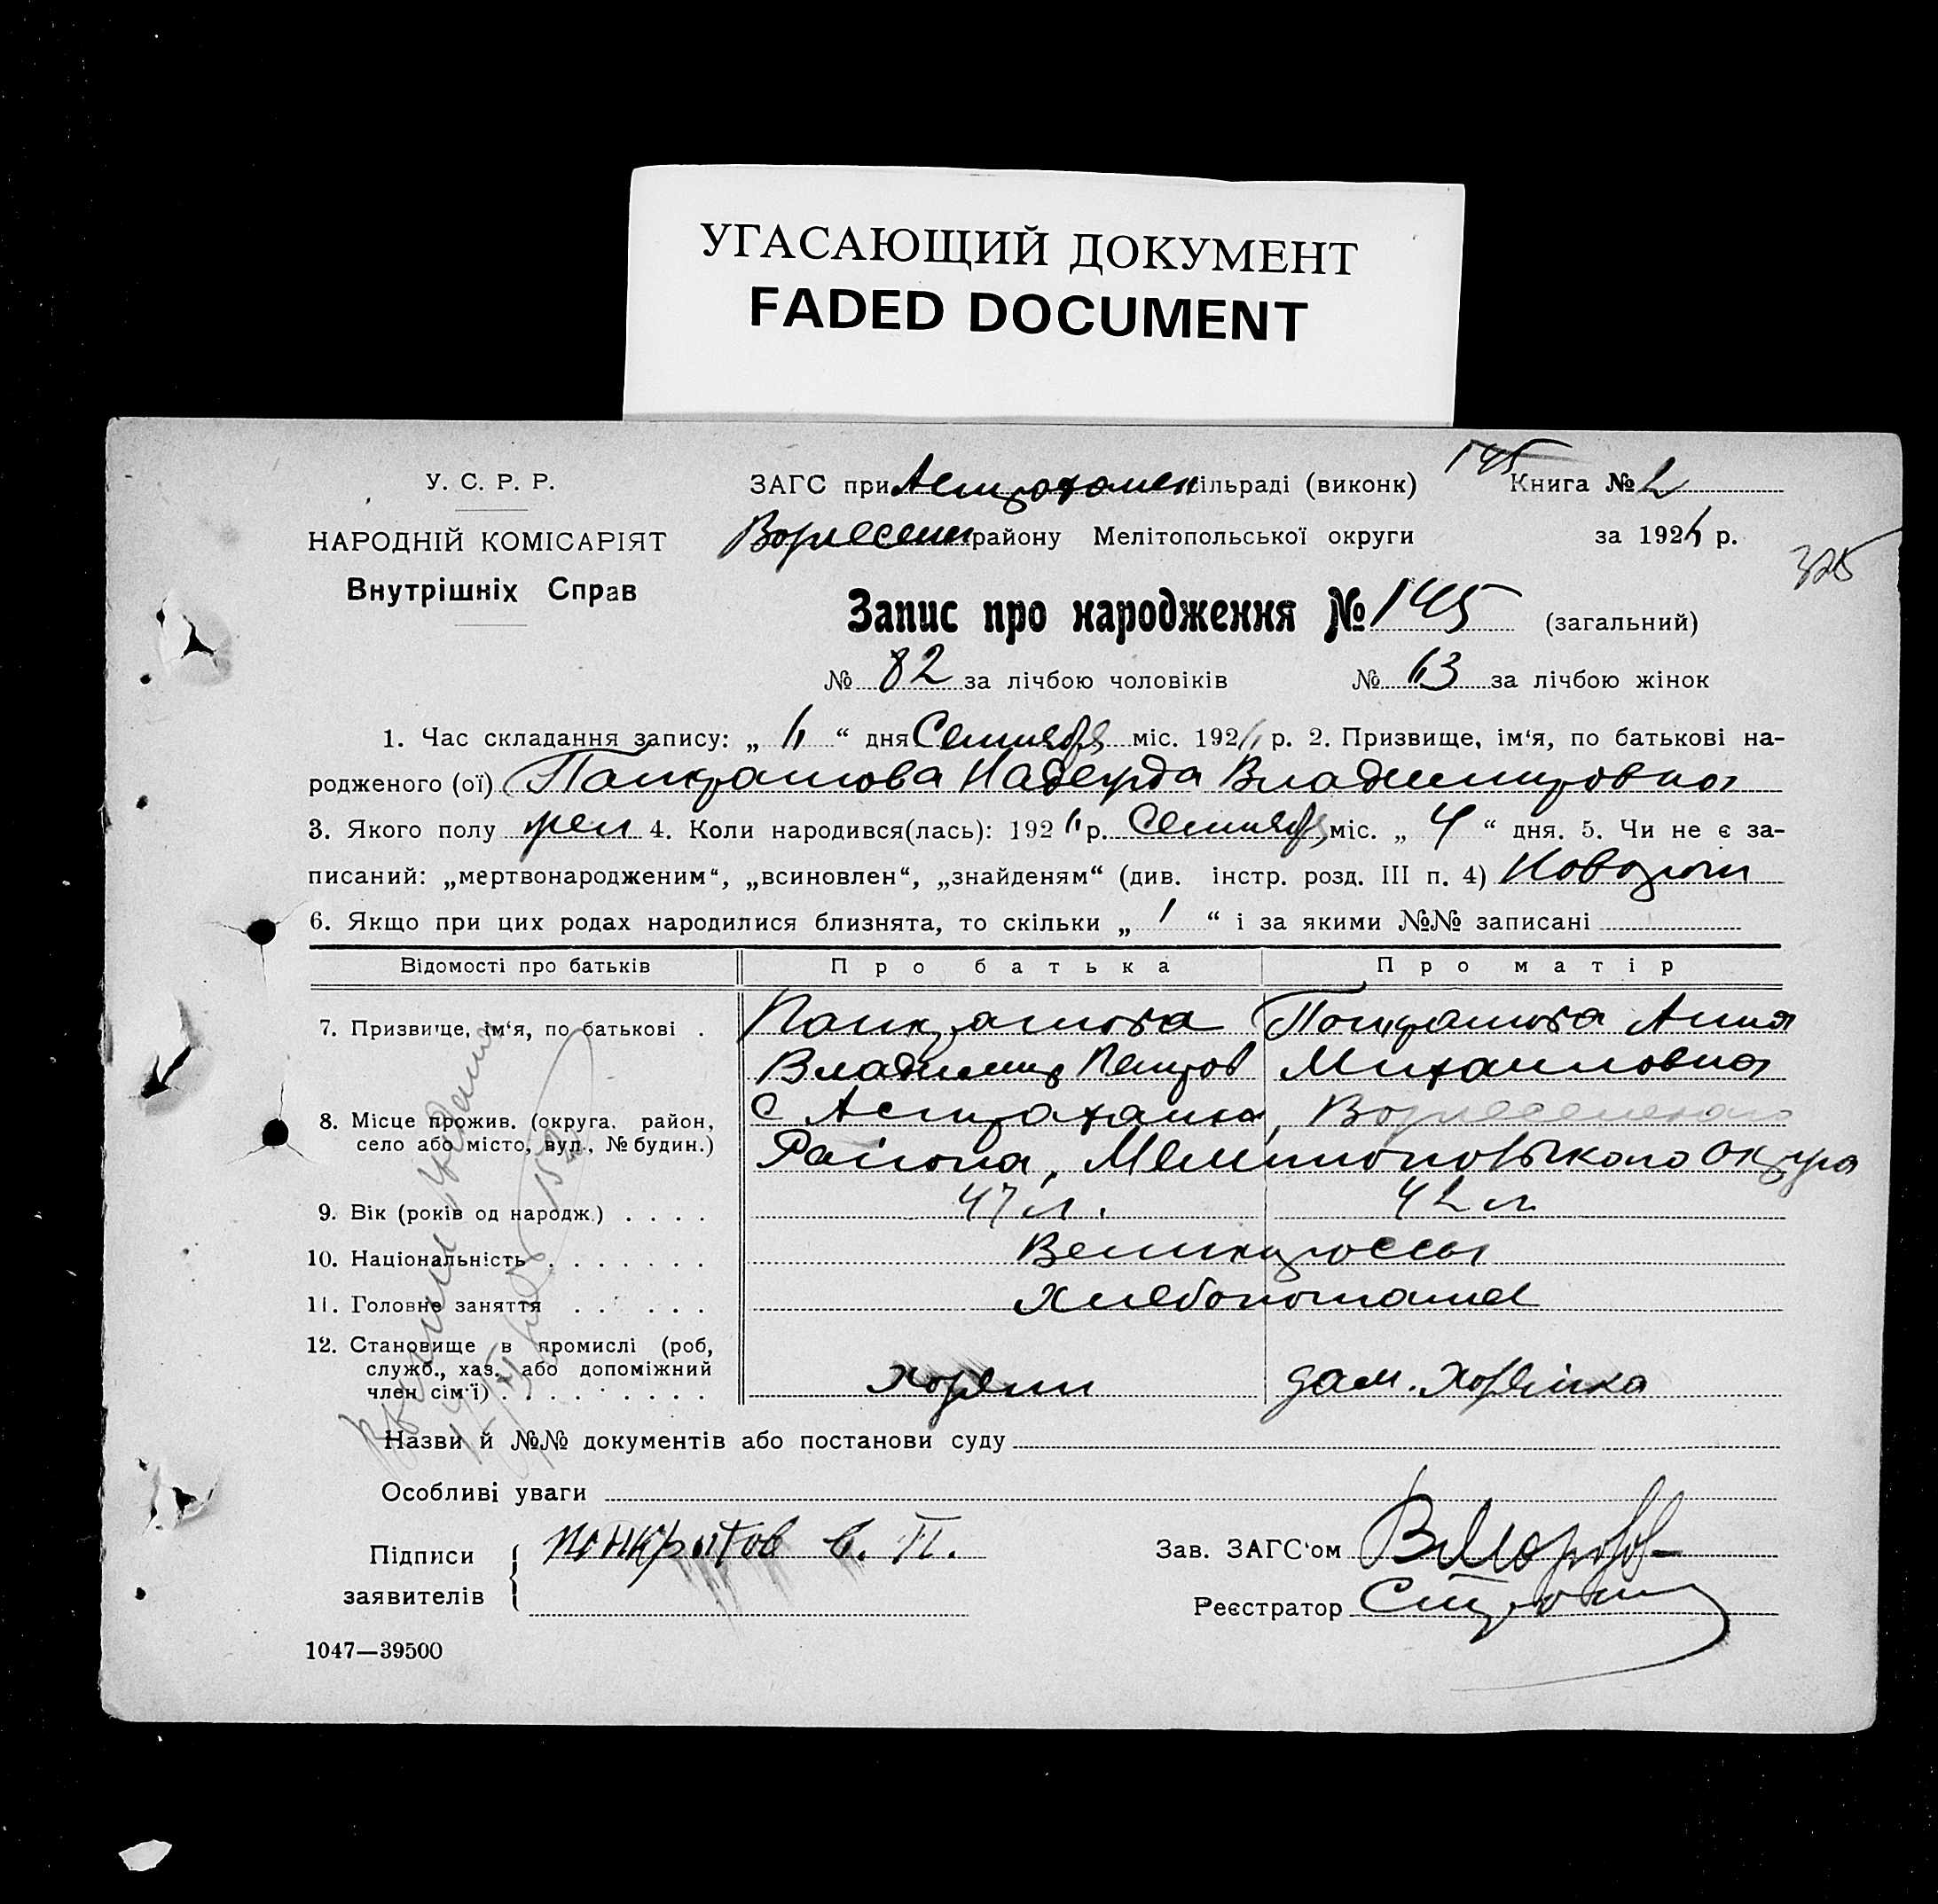 УГАСАЮЩИЙ ДОКУМЕНТ
FADED DOCUMENT
У. С. Р. Р.
НАРОДНІЙ КОМІСАРІЯТ
Внутрішніх Справ
ЗАГС при Астраханск сільраді (виконк) 145 Книга № 2
Вознесенск району Мелітопольської округи за 1926 р.
325
Запис про народження № 145 (загальний)
№ 82 за лічбою чоловіків № 63 за лічбою жінок
1. Час складання запису: „ 6 “ дня Сентября міс. 1926 р. 2. Призвище, ім‘я, по батькові на-
родженого (ої) Панкратова Надежда Владимировна
3. Якого полу жен 4. Коли народився(лась): 1926 р. Сентября міс. „ 4 “ дня. 5. Чи не є за-
писаний: „мертвонародженим“, „всиновлен“, „знайденям“ (див. інстр. розд. III п. 4)
6. Якщо при цих родах народилися близнята, то скільки „ 1 “ і за якими №№ записані
Відомості про батьків Про батька Про матір
7. Призвище, ім‘я, по батькові . Панкратова Панкратова Анна
Владимир Петров Михаиловна
8. Місце прожив. (округа. район, С Астраханка, Вознесенского
село або місто, вул., № будин.) Района, Мелитопольского Округа
9. Вік (років од народж.) . . . . 47 л. 42 л.
10. Національність . . . . . . . Великороссы
11. Головне заняття . . . . . . Хлебопашцы
12. Становище в промислі (роб,
служб., хаз. або допоміжний
член сім‘ї) . . . . . . . . . Хозяин дом. Хозяйка
Назви й №№ документів або постанови суду
Особливі уваги
Підписи заявителів Понкратов в. П.
Зав. ЗАГС‘ом
Реєстратор
1047—39500